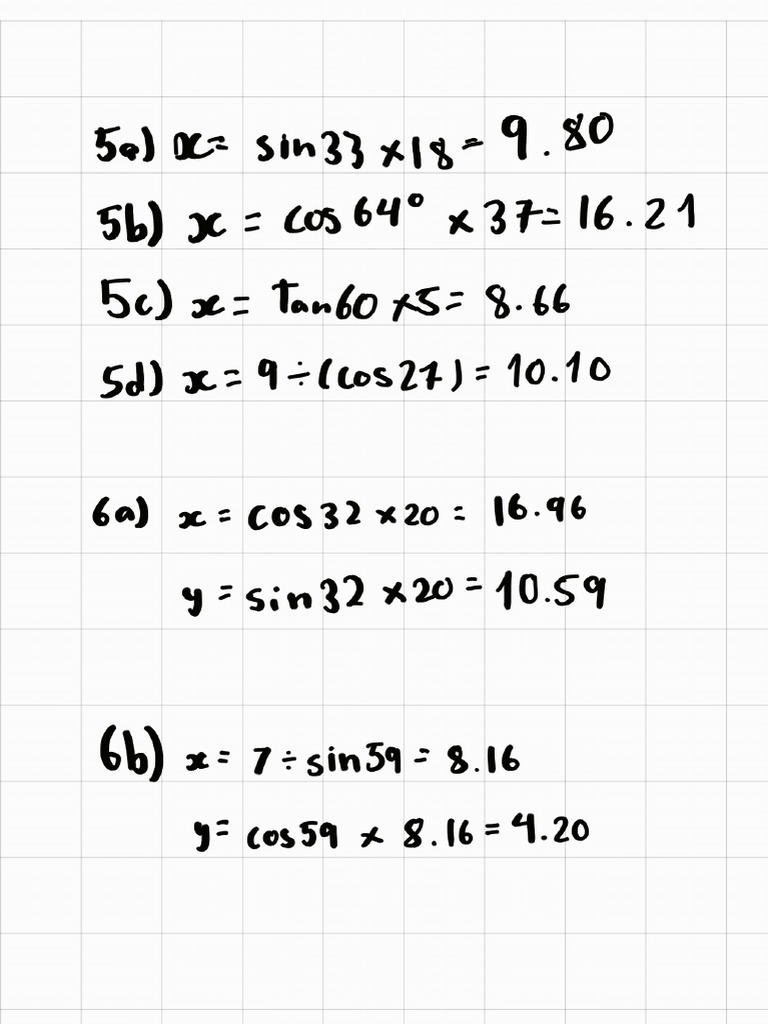 5a) x= sin33 ×18 = 9.80
5b) x = cos 64° × 37= 16.21
5c) x= Tan60 ×5= 8.66
5d) x = 9÷(cos27) = 10.10
6a) x = cos32 ×20 = 16.96
y = sin32 ×20 = 10.59
6b) x = 7 ÷ sin59 = 8.16
y= cos59 × 8.16 = 4.20